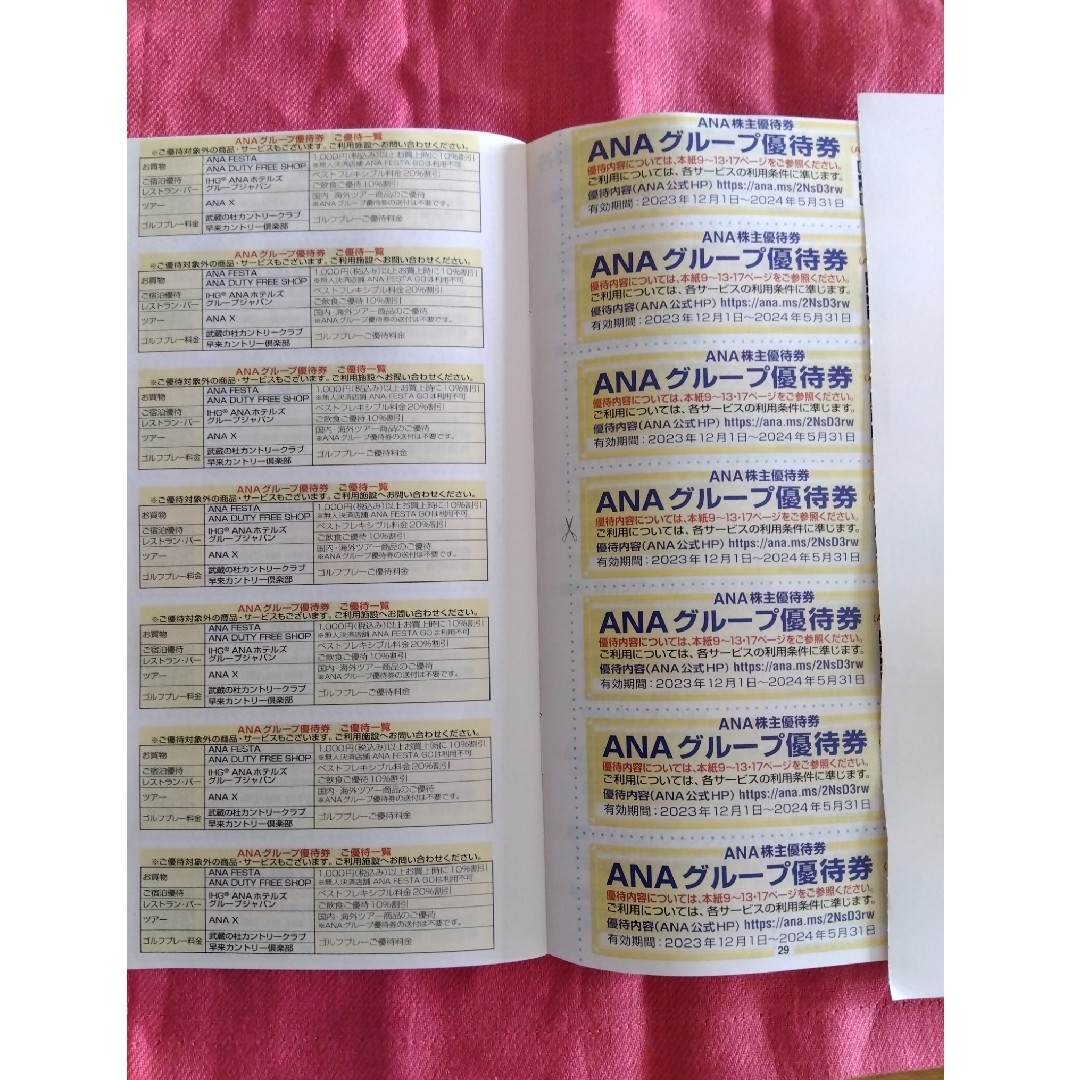 ANAグループ優待券 ご優待一覧
※ご優待対象外の商品・サービスもございます。ご利用施設へお問い合わせください。
お買物 ANA FESTA 1,000円(税込み)以上お買上時に10%割引
ANA DUTY FREE SHOP ※無人決済店舗 ANA FESTA GOは利用不可
ご宿泊優待 IHG® ANAホテルズ ベストフレキシブル料金20%割引
レストラン・バー グループジャパン ご飲食ご優待10%割引
ツアー ANA X 国内・海外ツアー商品のご優待
※ANAグループ優待券の送付は不要です。
ゴルフプレー料金 武蔵の杜カントリークラブ ゴルフプレーご優待料金
早来カントリー倶楽部
ANAグループ優待券 ご優待一覧
※ご優待対象外の商品・サービスもございます。ご利用施設へお問い合わせください。
お買物 ANA FESTA 1,000円(税込み)以上お買上時に10%割引
ANA DUTY FREE SHOP ※無人決済店舗 ANA FESTA GOは利用不可
ご宿泊優待 IHG® ANAホテルズ ベストフレキシブル料金20%割引
レストラン・バー グループジャパン ご飲食ご優待10%割引
ツアー ANA X 国内・海外ツアー商品のご優待
※ANAグループ優待券の送付は不要です。
ゴルフプレー料金 武蔵の杜カントリークラブ ゴルフプレーご優待料金
早来カントリー倶楽部
ANAグループ優待券 ご優待一覧
※ご優待対象外の商品・サービスもございます。ご利用施設へお問い合わせください。
お買物 ANA FESTA 1,000円(税込み)以上お買上時に10%割引
ANA DUTY FREE SHOP ※無人決済店舗 ANA FESTA GOは利用不可
ご宿泊優待 IHG® ANAホテルズ ベストフレキシブル料金20%割引
レストラン・バー グループジャパン ご飲食ご優待10%割引
ツアー ANA X 国内・海外ツアー商品のご優待
※ANAグループ優待券の送付は不要です。
ゴルフプレー料金 武蔵の杜カントリークラブ ゴルフプレーご優待料金
早来カントリー倶楽部
ANAグループ優待券 ご優待一覧
※ご優待対象外の商品・サービスもございます。ご利用施設へお問い合わせください。
お買物 ANA FESTA 1,000円(税込み)以上お買上時に10%割引
ANA DUTY FREE SHOP ※無人決済店舗 ANA FESTA GOは利用不可
ご宿泊優待 IHG® ANAホテルズ ベストフレキシブル料金20%割引
レストラン・バー グループジャパン ご飲食ご優待10%割引
ツアー ANA X 国内・海外ツアー商品のご優待
※ANAグループ優待券の送付は不要です。
ゴルフプレー料金 武蔵の杜カントリークラブ ゴルフプレーご優待料金
早来カントリー倶楽部
ANAグループ優待券 ご優待一覧
※ご優待対象外の商品・サービスもございます。ご利用施設へお問い合わせください。
お買物 ANA FESTA 1,000円(税込み)以上お買上時に10%割引
ANA DUTY FREE SHOP ※無人決済店舗 ANA FESTA GOは利用不可
ご宿泊優待 IHG® ANAホテルズ ベストフレキシブル料金20%割引
レストラン・バー グループジャパン ご飲食ご優待10%割引
ツアー ANA X 国内・海外ツアー商品のご優待
※ANAグループ優待券の送付は不要です。
ゴルフプレー料金 武蔵の杜カントリークラブ ゴルフプレーご優待料金
早来カントリー倶楽部
ANAグループ優待券 ご優待一覧
※ご優待対象外の商品・サービスもございます。ご利用施設へお問い合わせください。
お買物 ANA FESTA 1,000円(税込み)以上お買上時に10%割引
ANA DUTY FREE SHOP ※無人決済店舗 ANA FESTA GOは利用不可
ご宿泊優待 IHG® ANAホテルズ ベストフレキシブル料金20%割引
レストラン・バー グループジャパン ご飲食ご優待10%割引
ツアー ANA X 国内・海外ツアー商品のご優待
※ANAグループ優待券の送付は不要です。
ゴルフプレー料金 武蔵の杜カントリークラブ ゴルフプレーご優待料金
早来カントリー倶楽部
ANAグループ優待券 ご優待一覧
※ご優待対象外の商品・サービスもございます。ご利用施設へお問い合わせください。
お買物 ANA FESTA 1,000円(税込み)以上お買上時に10%割引
ANA DUTY FREE SHOP ※無人決済店舗 ANA FESTA GOは利用不可
ご宿泊優待 IHG® ANAホテルズ ベストフレキシブル料金20%割引
レストラン・バー グループジャパン ご飲食ご優待10%割引
ツアー ANA X 国内・海外ツアー商品のご優待
※ANAグループ優待券の送付は不要です。
ゴルフプレー料金 武蔵の杜カントリークラブ ゴルフプレーご優待料金
早来カントリー倶楽部
ANA株主優待券
ANAグループ優待券
優待内容については、本紙9~13・17ページをご参照ください。
ご利用については、各サービスの利用条件に準じます。
優待内容(ANA公式HP) https://ana.ms/2NsD3rw
有効期間:2023年12月1日~2024年5月31日
ANA株主優待券
ANAグループ優待券
優待内容については、本紙9~13・17ページをご参照ください。
ご利用については、各サービスの利用条件に準じます。
優待内容(ANA公式HP) https://ana.ms/2NsD3rw
有効期間:2023年12月1日~2024年5月31日
ANA株主優待券
ANAグループ優待券
優待内容については、本紙9~13・17ページをご参照ください。
ご利用については、各サービスの利用条件に準じます。
優待内容(ANA公式HP) https://ana.ms/2NsD3rw
有効期間:2023年12月1日~2024年5月31日
ANA株主優待券
ANAグループ優待券
優待内容については、本紙9~13・17ページをご参照ください。
ご利用については、各サービスの利用条件に準じます。
優待内容(ANA公式HP) https://ana.ms/2NsD3rw
有効期間:2023年12月1日~2024年5月31日
ANA株主優待券
ANAグループ優待券
優待内容については、本紙9~13・17ページをご参照ください。
ご利用については、各サービスの利用条件に準じます。
優待内容(ANA公式HP) https://ana.ms/2NsD3rw
有効期間:2023年12月1日~2024年5月31日
ANA株主優待券
ANAグループ優待券
優待内容については、本紙9~13・17ページをご参照ください。
ご利用については、各サービスの利用条件に準じます。
優待内容(ANA公式HP) https://ana.ms/2NsD3rw
有効期間:2023年12月1日~2024年5月31日
ANA株主優待券
ANAグループ優待券
優待内容については、本紙9~13・17ページをご参照ください。
ご利用については、各サービスの利用条件に準じます。
優待内容(ANA公式HP) https://ana.ms/2NsD3rw
有効期間:2023年12月1日~2024年5月31日
29